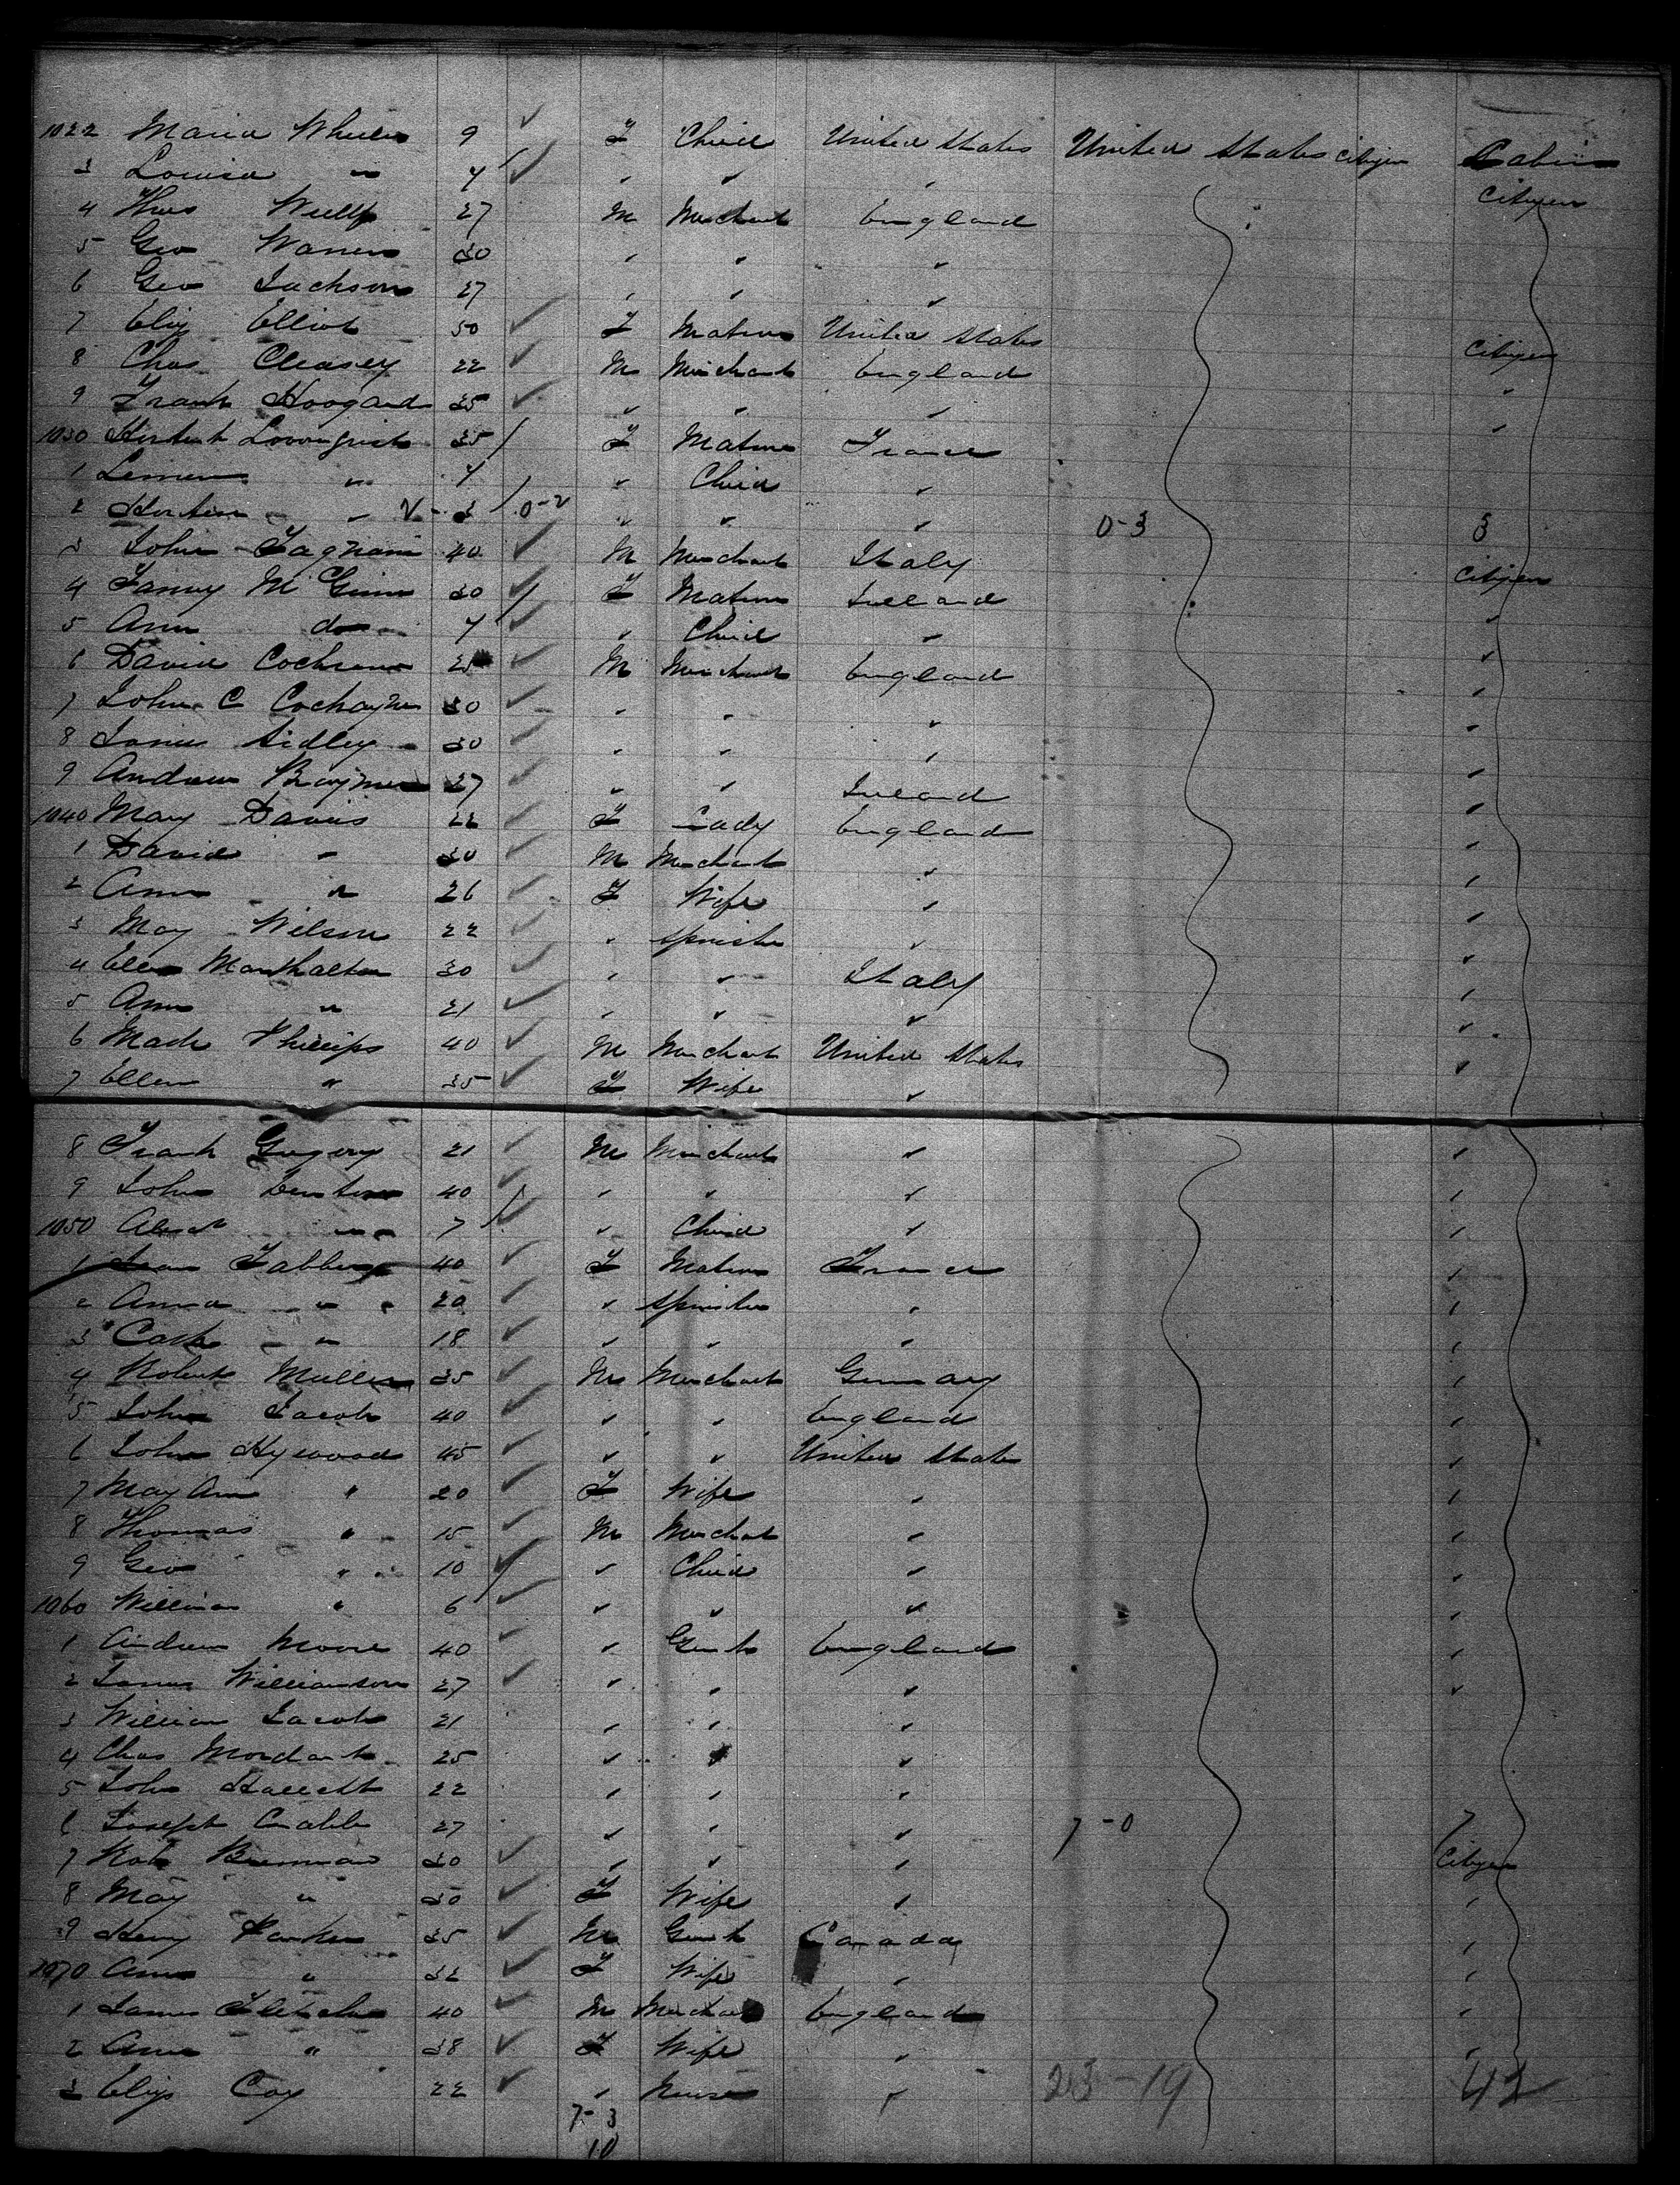 1022 Maria Wheeler 9 F Child United States United States Citizen Cabin
3 Louisa " 4 " " " Citizen
4 Thos 27 M Merchant England
5 Geo Warren 30 " " "
6 Geo Jackson 27 " " "
7 Eliz Elliot 50 F Matron United States Citizen
8 Chas Cleasey 22 M Merchant England "
9 Frank Hoogard 35 " " " "
1030 35 F Matron France
1 " 4 " Child "
2 " 2 - 3 0-2 " " " 0-3 3
3 John Fagnani 40 M Merchant Italy Citizen
4 Fanny McGinn 30 F Matron Ireland "
5 Ann do 4 " Child " "
6 David Cochrane M Merchant England "
7 John C Cochayne 30 " " " "
8 James Sidley 30 " " " "
9 Andrew 27 " " Ireland "
1040 Mary Davis 22 F Lady England "
1 David " 30 M Merchant " "
2 Ann " 26 F Wife " "
3 May Wilson 22 " Spinster " "
4 Ellen 30 " " Italy "
5 Ann " 21 " " " "
6 Mark Phillips 40 M Merchant United States "
7 Ellen " 35 F Wife "
8 Frank Gregory 21 M Merchant " "
9 John 40 " " " "
1050 Albert " 7 " Child " "
1 40 F Matron France "
2 Anna " 20 " Spinster " "
3 " 18 " " " "
4 Robert Muller 35 M Merchant Germany "
5 John Jacob 40 " " England "
6 John Hywood 45 " " United States "
7 May Ann " 20 F Wife " "
8 Thomas " 15 M Merchant " "
9 Geo " 10 " Child " "
1060 William " 6 " " " "
1 Andrew Moore 40 " Gent England "
2 James Williamson 27 " " " "
3 William Jacob 21 " " "
4 Chas Mordant 25 " " "
5 John Hallett 22 " " "
6 Joseph Crabb 27 " " " 7-0 7
7 Robt Brennan 30 " " " Citizen
8 May " 30 F Wife " "
9 Henry Parker 35 M Gent Canada "
1070 Ann " 32 F Wife " "
1 James Fletcher 40 M Merchant England "
2 Ann " 38 F Wife " "
3 Eliza Cox 22 " Nurse " 23-19 42
7-3
10